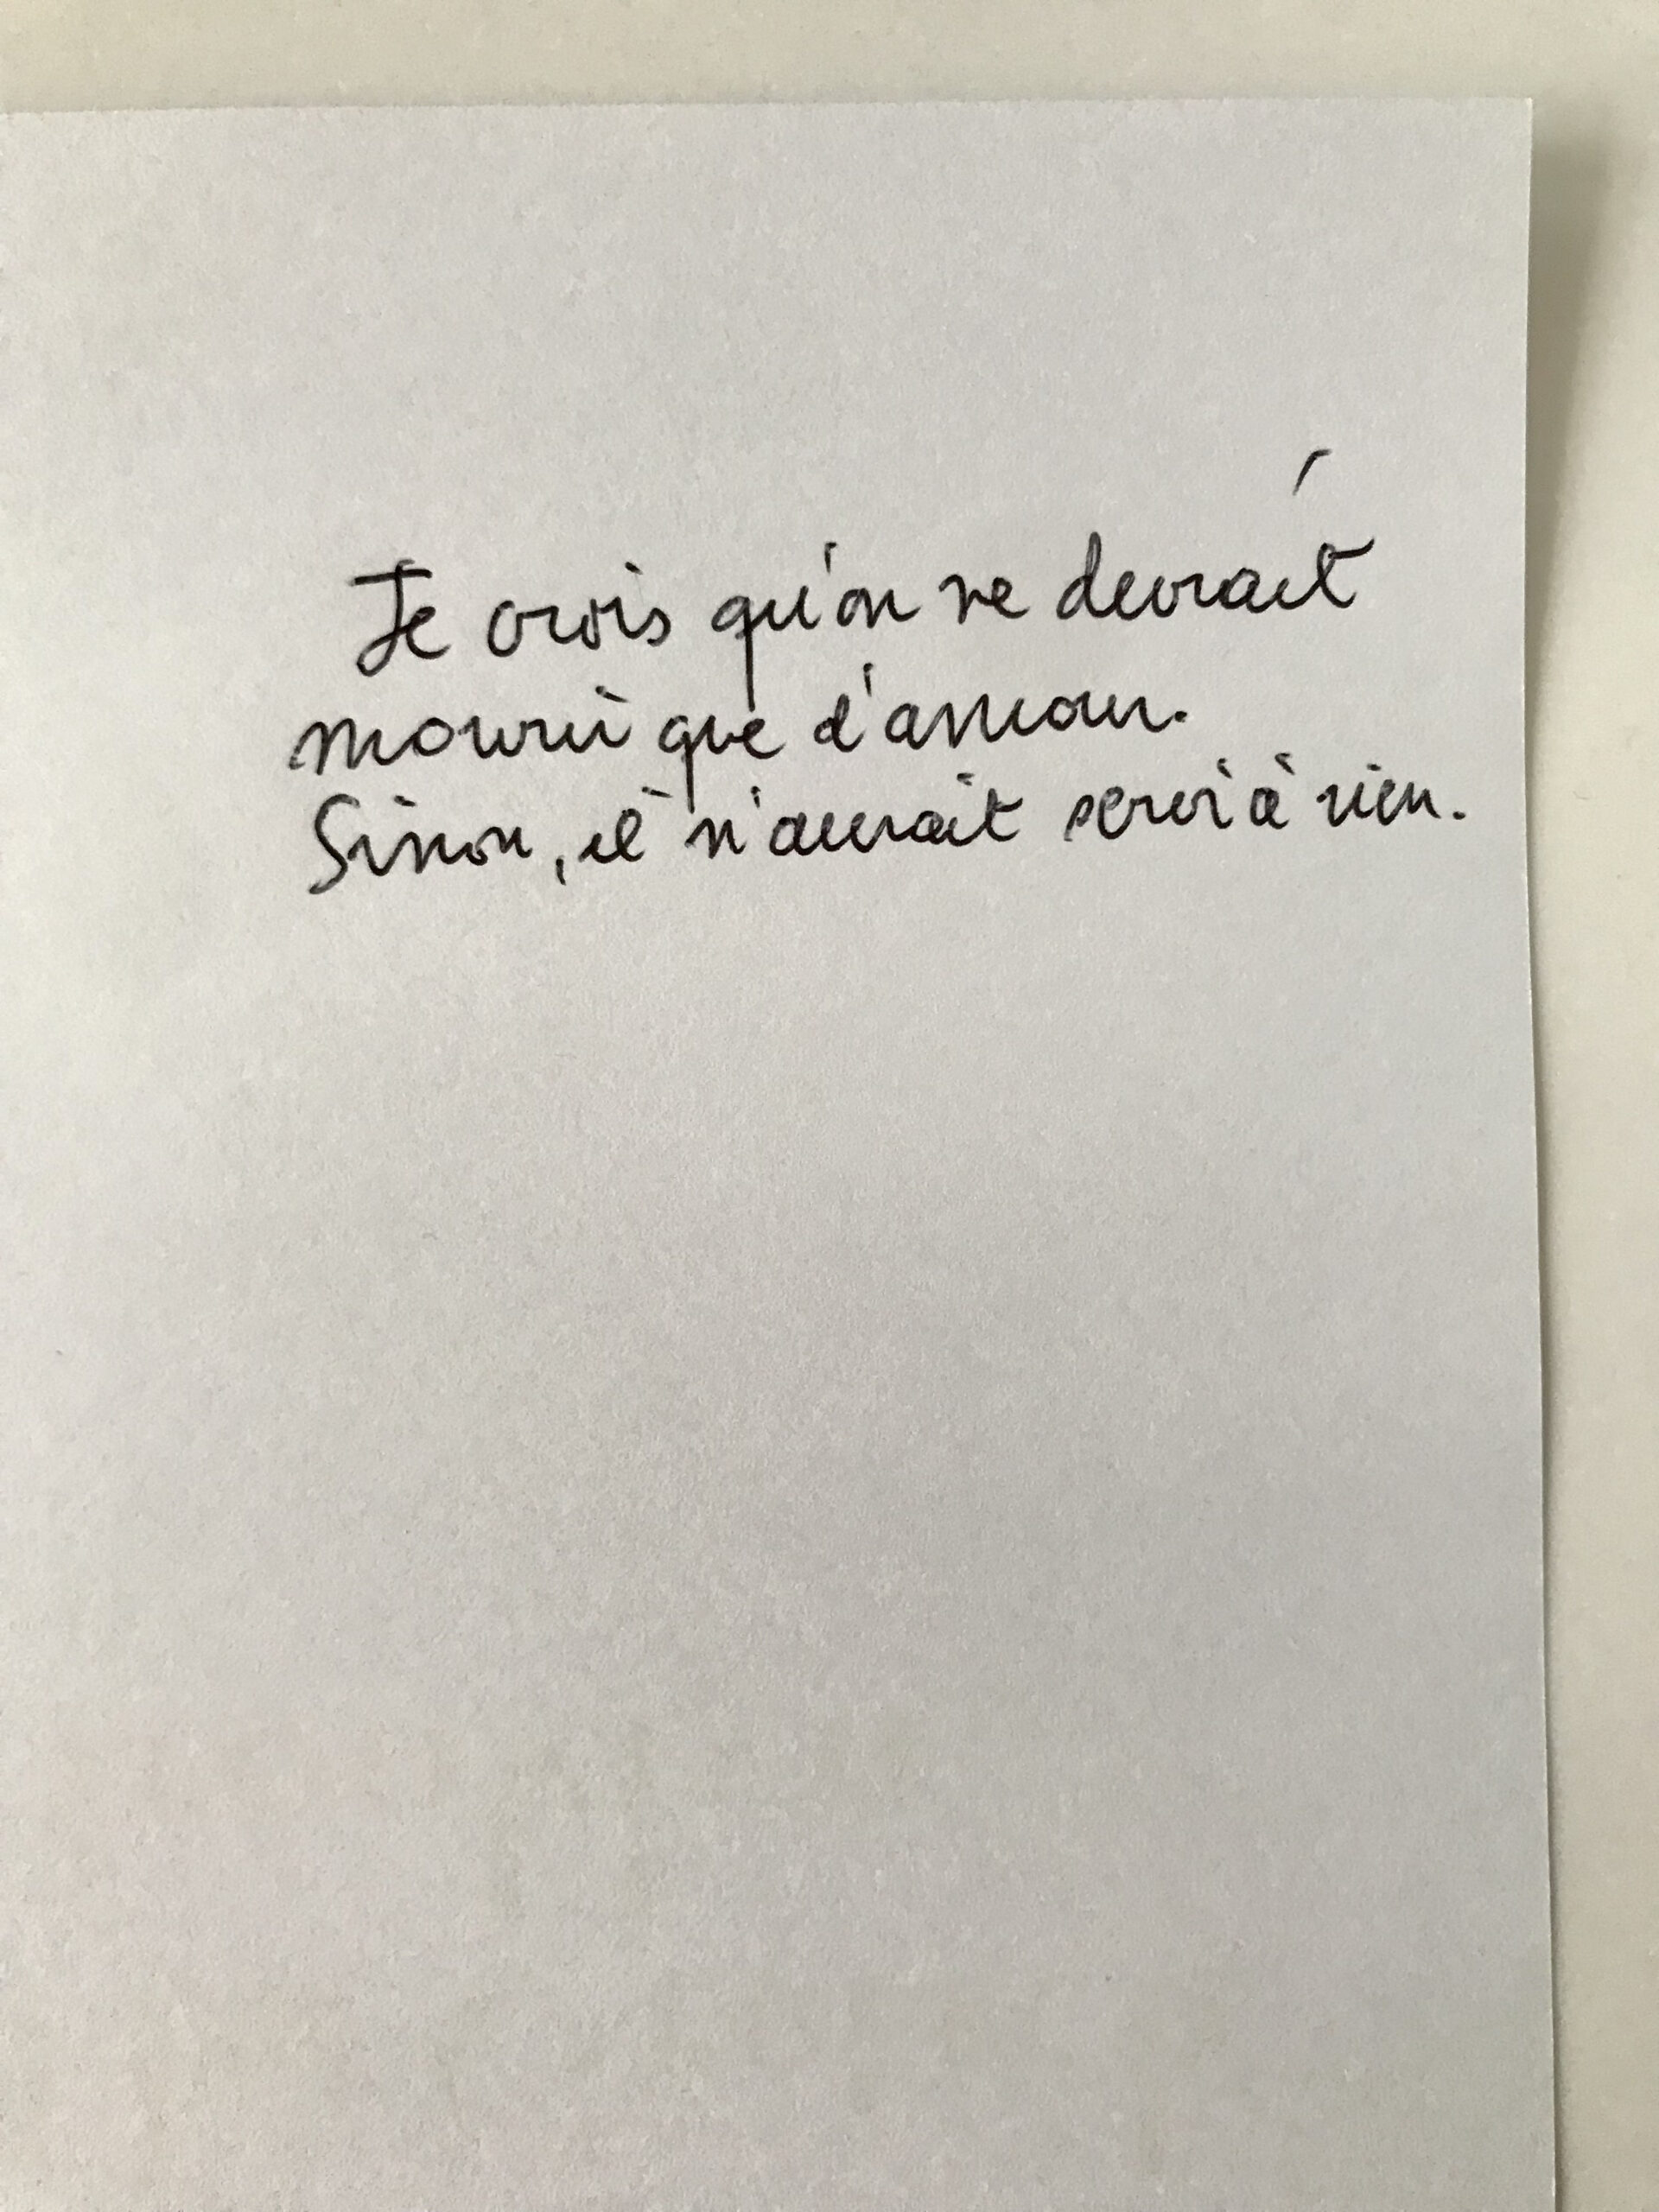 Je crois qu'on ne devrait
mourir que d'amour.
Sinon, il n'aurait servi à rien.